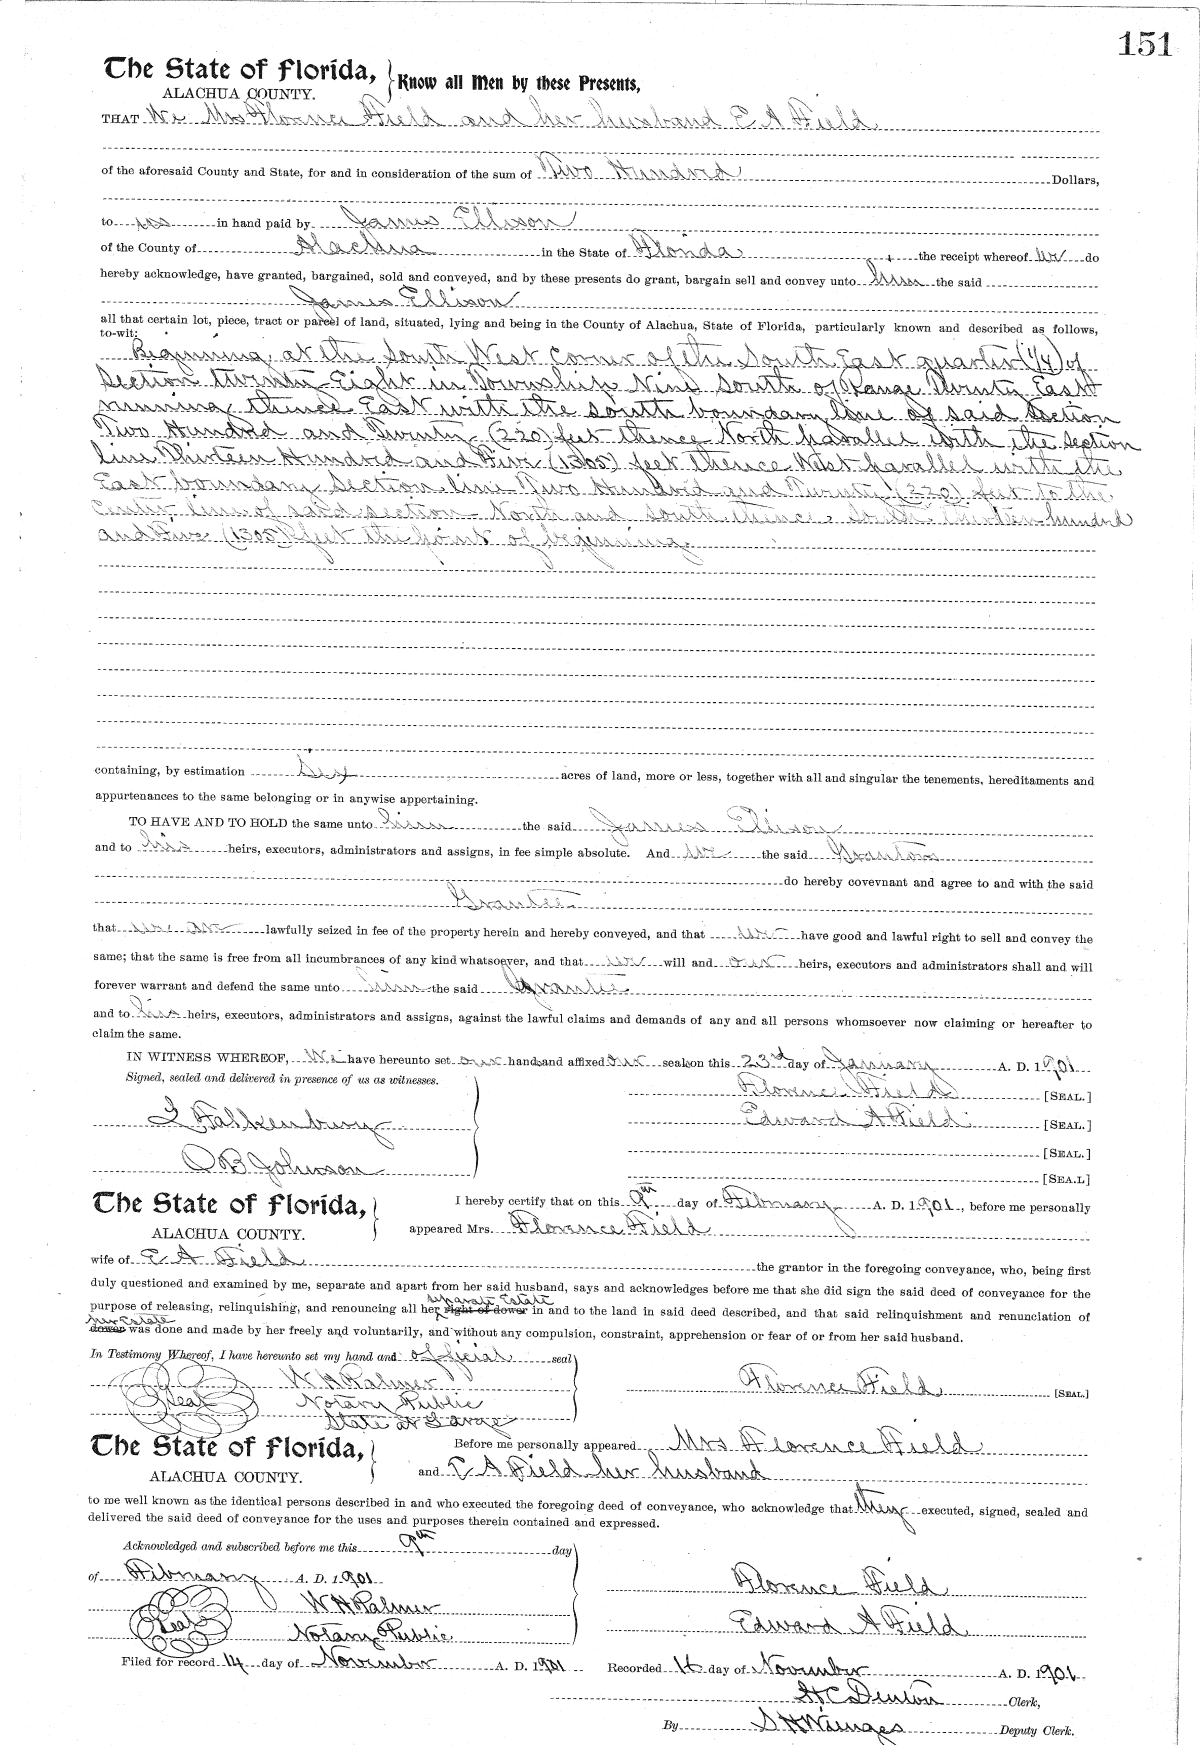 151
The State of Florida, Know all Men by these Presents,
ALACHUA COUNTY.
THAT We Mrs Florence Field and her husband E A Field
of the aforesaid County and State, for and in consideration of the sum of Two Hundred Dollars,
to us in hand paid by James Ellison
of the County of Alachua in the State of Florida the receipt whereof we do
hereby acknowledge, have granted, bargained, sold and conveyed, and by these presents do grant, bargain sell and convey unto him the said
James Ellison
all that certain lot, piece, tract or parcel of land, situated, lying and being in the County of Alachua, State of Florida, particularly known and described as follows,
to-wit:
Beginning at the South West Corner of the South East quarter (1/4) of
Section twenty Eight in Township Nine South of Range Twenty East
running thence East with the south boundary line of said section
Two Hundred and Twenty (220) feet thence North paralled with the section
line Thirteen Hundred and Five (1305) feet thence West paralled with the
East boundary section line Two Hundred and Twenty (220) feet to the
Center line of said section North and South thence South Thirteen hundred
and Five (1305) feet the point of beginning
containing, by estimation Six acres of land, more or less, together with all and singular the tenements, hereditaments and
appurtenances to the same belonging or in anywise appertaining.
TO HAVE AND TO HOLD the same unto him the said James Ellison
and to his heirs, executors, administrators and assigns, in fee simple absolute. And we the said Grantors
do hereby covevnant and agree to and with the said
Grantee
that we are lawfully seized in fee of the property herein and hereby conveyed, and that we have good and lawful right to sell and convey the
same; that the same is free from all incumbrances of any kind whatsoever, and that we will and our heirs, executors and administrators shall and will
forever warrant and defend the same unto him the said Grantee
and to his heirs, executors, administrators and assigns, against the lawful claims and demands of any and all persons whomsoever now claiming or hereafter to
claim the same.
IN WITNESS WHEREOF, We have hereunto set our hands and affixed our seals on this 23rd day of January A. D. 1901
Signed, sealed and delivered in presence of us as witnesses.
Florence Field [SEAL.]
Falkenbury Edward A Field [SEAL.]
[SEAL.]
O B Johnson [SEAL]
The State of Florida, I hereby certify that on this 9th day of February A. D. 1901, before me personally
ALACHUA COUNTY. appeared Mrs. Florence Field
wife of E A Field the grantor in the foregoing conveyance, who, being first
duly questioned and examined by me, separate and apart from her said husband, says and acknowledges before me that she did sign the said deed of conveyance for the
separate Estate
purpose of releasing, relinquishing, and renouncing all her right of dower in and to the land in said deed described, and that said relinquishment and renunciation of
her Estate
dower was done and made by her freely and voluntarily, and without any compulsion, constraint, apprehension or fear of or from her said husband.
In Testimony Whereof, I have hereunto set my hand and official seal
W H Palmer Florence Field [SEAL.]
Seal Notary Public
State at Large
The State of Florida, Before me personally appeared Mrs Florence Field
ALACHUA COUNTY. and E A Field her husband
to me well known as the identical persons described in and who executed the foregoing deed of conveyance, who acknowledge that they executed, signed, sealed and
delivered the said deed of conveyance for the uses and purposes therein contained and expressed.
Acknowledged and subscribed before me this 9th day
of February A. D. 1901 Florence Field
W H Palmer
Seal Notary Public Edward A Field
Filed for record 14 day of November A. D. 1901 Recorded 14 day of November A. D. 1901
H C Denton Clerk,
By Deputy Clerk.